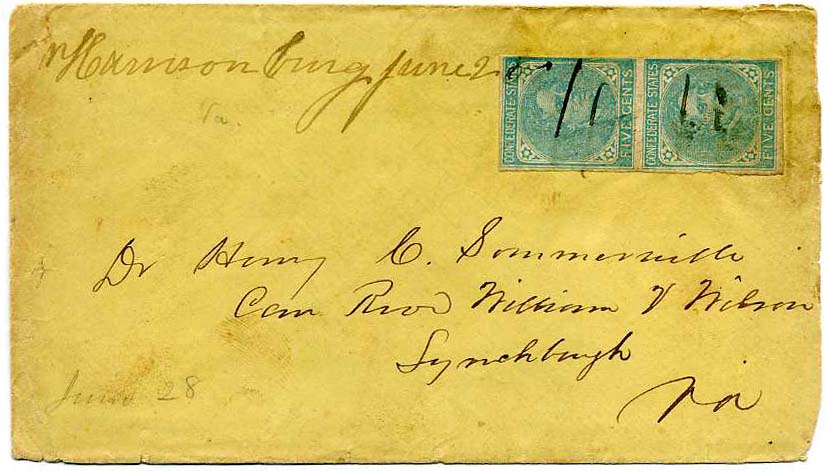 Harrisonburg June 28
Va
CONFEDERATE STATES
FIVE CENTS
CONFEDERATE STATES
FIVE CENTS
Dr Henry C. Sommerville
Care Revd William V Wilson
Lynchburgh
Va
June 28